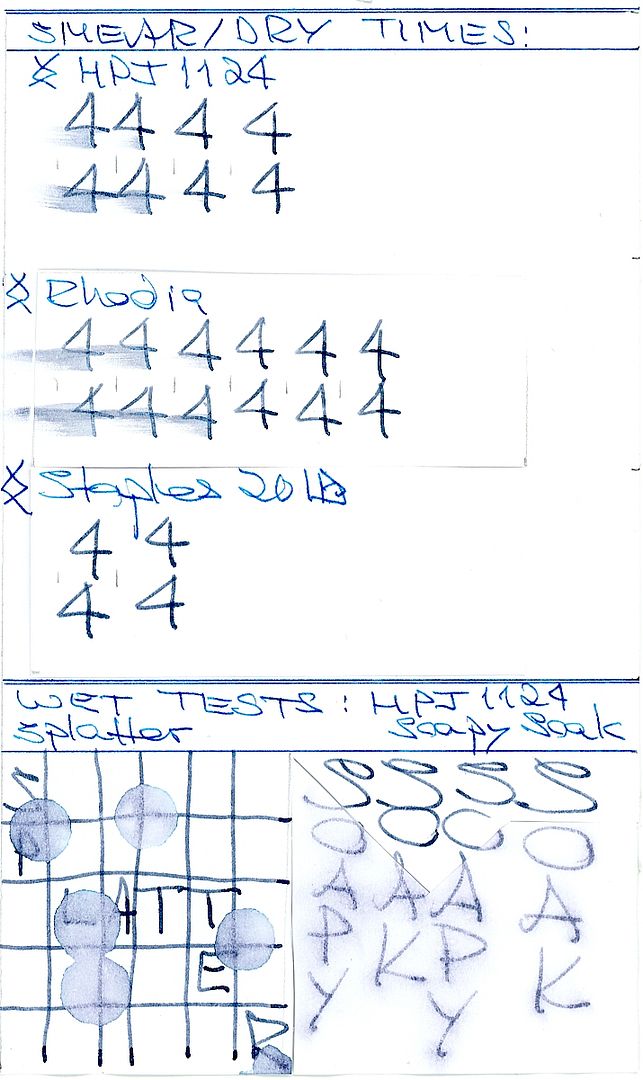 SMEAR/DRY TIMES:
HPJ1124
4 4 4 4
4 4 4 4
Rhodia
4 4 4 4 4 4
4 4 4 4 4 4
Staples 20LB
4 4
4 4
WET TESTS: HPJ1124
Splatter Soapy Soak
SPLATTED
S S S S
O O O O
A A A A
P K P K
Y Y